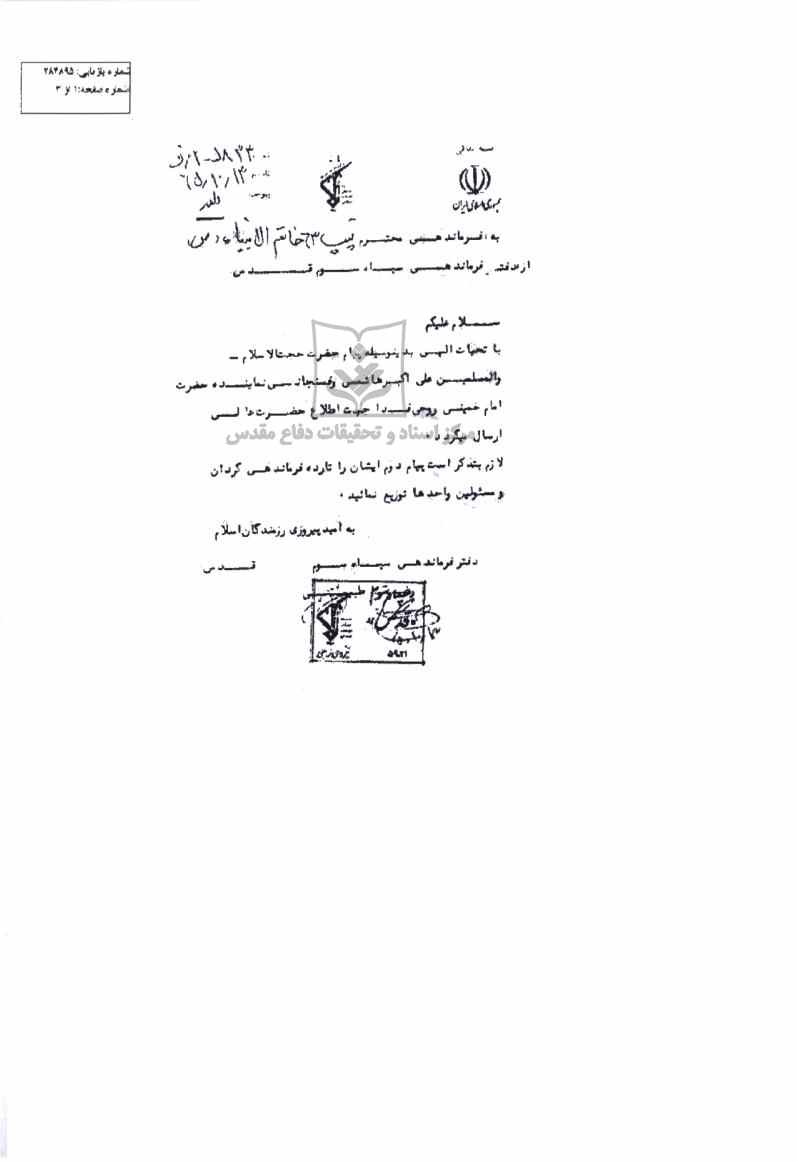 شماره بازیابی: ۲۸۴۸۹۵
شماره صفحه: ۱ از ۳
بسمه تعالی
جمهوری اسلامی ایران
۶۵/۱۰/۱۳
دارد
به: فرماندهی محترم تیپ ۶۳ خاتم الانبیاء (ص)
از: دفتر فرماندهی سپاه سوم قدس
سلام علیکم
با تحیات الهی بدینوسیله پیام حضرت حجت الاسلام –
والمسلمین علی اکبر هاشمی رفسنجانی نماینده حضرت
امام خمینی روحی فدا جهت اطلاع حضرتعالی
ارسال میگردد.
مرکز اسناد و تحقیقات دفاع مقدس
لازم بتذکر است پیام دوم ایشان را تا رده فرماندهی گردان
و مسئولین واحدها توزیع نمائید.
به امید پیروزی رزمندگان اسلام
دفتر فرماندهی سپاه سوم قدس
نیروی زمینی